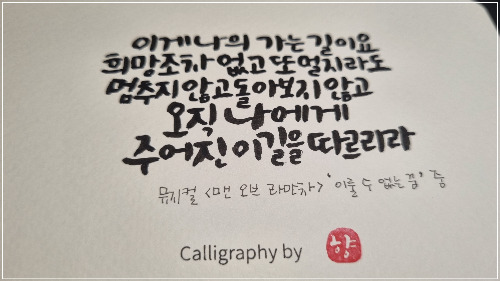 이게 나의 가는 길이요
희망조차 없고 또 멀지라도
멈추지 않고 돌아보지 않고
오직 나에게
주어진 이 길을 따르리라
뮤지컬 <맨 오브 라만차> '이룰 수 없는 꿈' 중
Calligraphy by 향